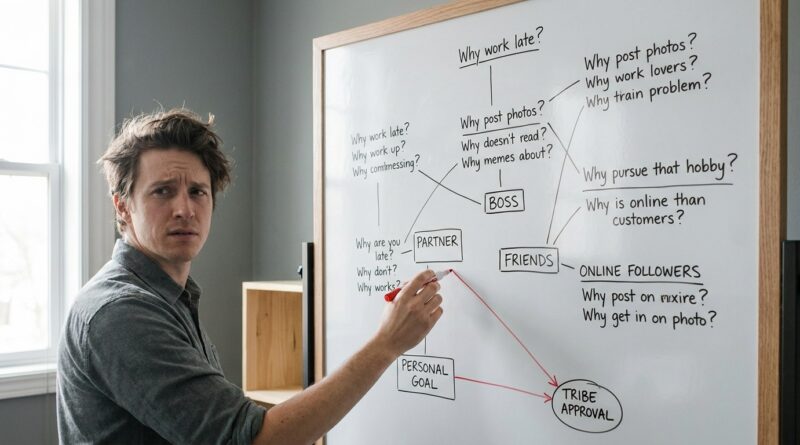 Why work late?
Why post photos?
Why work lovers?
Why train problem?
Why post photos?
Why doesn't read?
Why memes about?
Why work late?
Why work up?
Why
BOSS
Why pursue that hobby?
Why is online than
customers?
Why are you
late?
Why don't?
Why works?
PARTNER
FRIENDS
ONLINE FOLLOWERS
Why post on
Why get in on photo?
PERSONAL
GOAL
TRIBE
APPROVAL